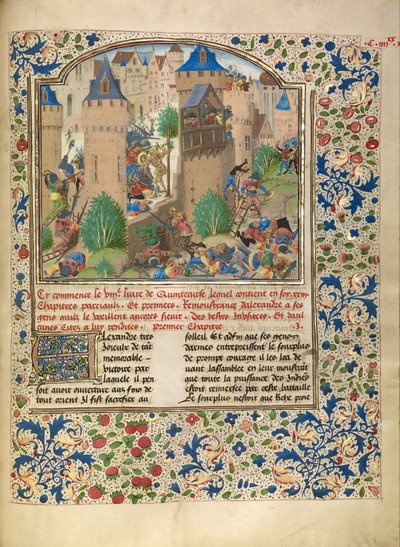 Cy commence le viiie livre de Quinte curse lequel contient en soy xxiii
Chapitres parciaulx. Et premiers. Remonstrance dalexandre a ses
gens quilz le vueillent ancores sievir. Des bestes Indoises. Et daul
cunes Citez a luy rendues. premier Chapitre .i.
Alexandre tres
Joieulx de tāt
memorable
victoire par
laquele il pen
soit avoir ouverture aux fins de
tout orient Il fist sacrefier au
solleil Et adfin que ses gens
darmes entrepreissent le sourplus
de prompt courage il les loa de
vant lassamblee en leur monstrāt
que toute la puissance des Indois
estoit renversee par ceste bataille
Le sourplus nestoit que riche proie